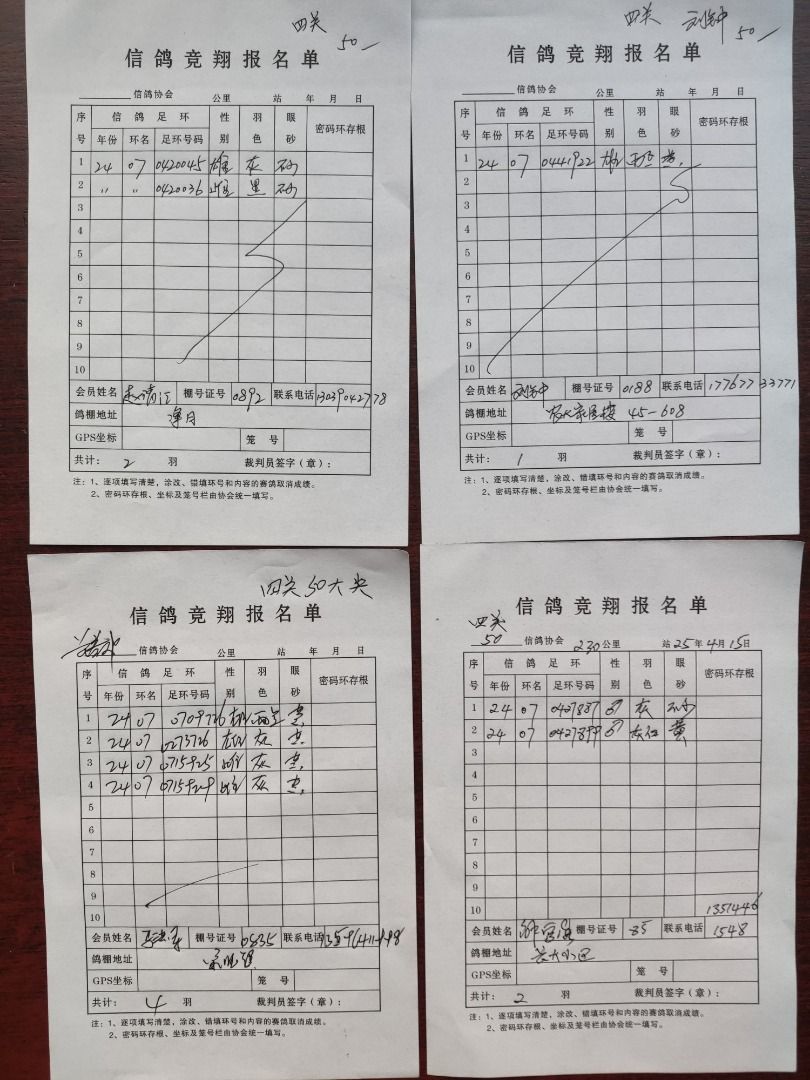 四关
50-
信鸽竞翔报名单
信鸽协会 公里 站 年 月 日
序号 信鸽足环 性别 羽色 眼砂 密码环存根
年份 环名 足环号码
1 24 07 0420045 雄 灰 砂
2 〃 〃 0420036 雌 黑 砂
3
4
5
6
7
8
9
10
会员姓名 赵清江 棚号证号 0892 联系电话 13039042778
鸽棚地址 净月
GPS坐标 笼号
共计: 2 羽 裁判员签字(章):
注:1、逐项填写清楚,涂改、错填环号和内容的赛鸽取消成绩。
2、密码环存根、坐标及笼号栏由协会统一填写。
四关 50-
信鸽竞翔报名单
信鸽协会 公里 站 年 月 日
序号 信鸽足环 性别 羽色 眼砂 密码环存根
年份 环名 足环号码
1 24 07 0441922 雄 黄
2
3
4
5
6
7
8
9
10
会员姓名 棚号证号 0188 联系电话 17767733771
鸽棚地址 农大家属楼 45-608
GPS坐标 笼号
共计: 1 羽 裁判员签字(章):
注:1、逐项填写清楚,涂改、错填环号和内容的赛鸽取消成绩。
2、密码环存根、坐标及笼号栏由协会统一填写。
四关 50大奖
信鸽竞翔报名单
信鸽协会 公里 站 年 月 日
序号 信鸽足环 性别 羽色 眼砂 密码环存根
年份 环名 足环号码
1 24 07 0709726 雄 雨点 黄
2 24 07 0273726 雄 灰 黄
3 24 07 0715925 雌 灰 黄
4 24 07 0715929 雌 灰 黄
5
6
7
8
9
10
会员姓名 棚号证号 0535 联系电话
鸽棚地址
GPS坐标 笼号
共计: 4 羽 裁判员签字(章):
注:1、逐项填写清楚,涂改、错填环号和内容的赛鸽取消成绩。
2、密码环存根、坐标及笼号栏由协会统一填写。
四关
50
信鸽竞翔报名单
信鸽协会 230公里 站 25年4月15日
序号 信鸽足环 性别 羽色 眼砂 密码环存根
年份 环名 足环号码
1 24 07 0427887 ♂ 灰 砂
2 24 07 0427899 ♂ 灰红 黄
3
4
5
6
7
8
9
10
会员姓名 棚号证号 85 联系电话 13514461548
鸽棚地址 长大小区
GPS坐标 笼号
共计: 2 羽 裁判员签字(章):
注:1、逐项填写清楚,涂改、错填环号和内容的赛鸽取消成绩。
2、密码环存根、坐标及笼号栏由协会统一填写。